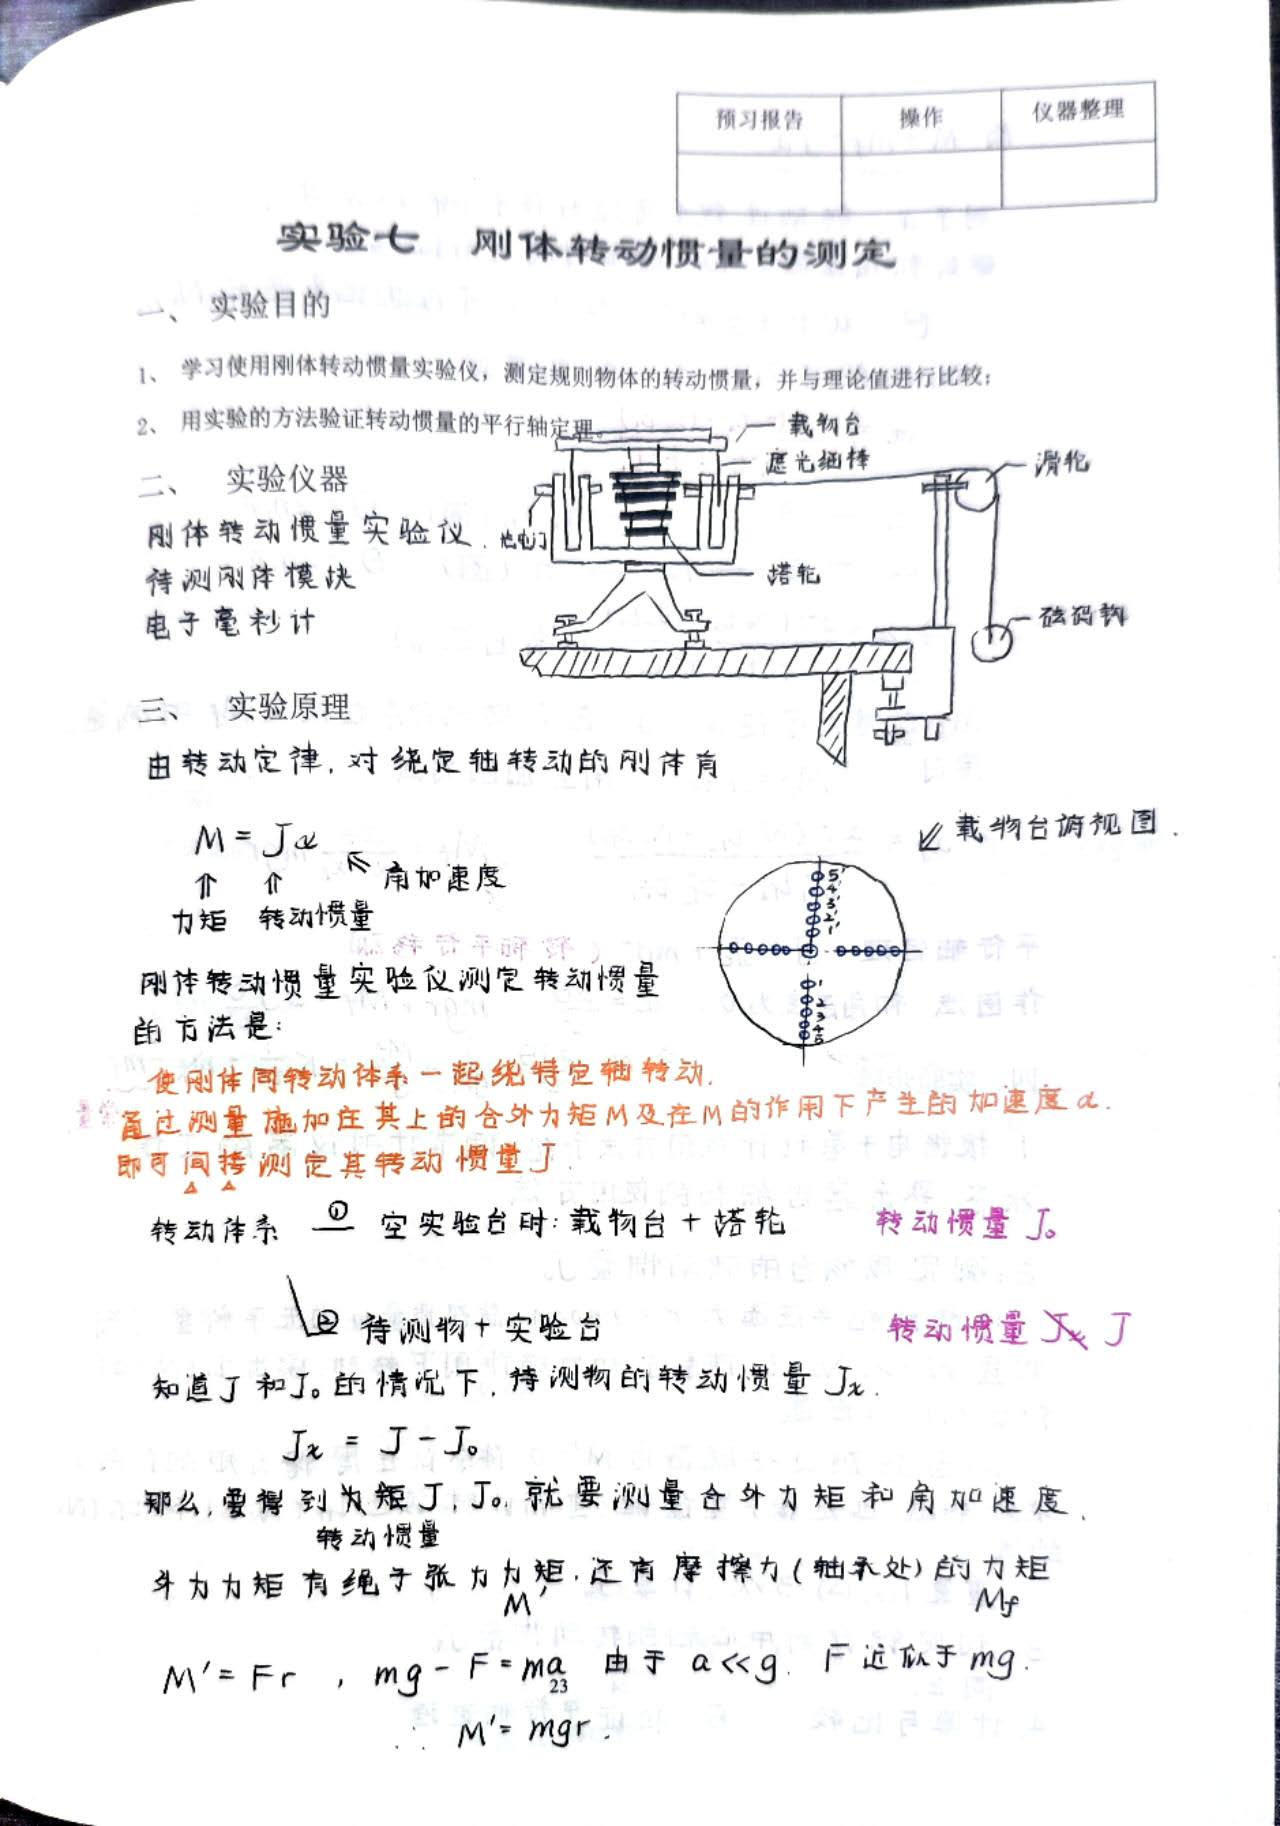 预习报告 操作 仪器整理
实验七 刚体转动惯量的测定
一、 实验目的
1、 学习使用刚体转动惯量实验仪，测定规则物体的转动惯量，并与理论值进行比较；
2、 用实验的方法验证转动惯量的平行轴定理。
载物台
遮光细棒
滑轮
二、 实验仪器
刚体转动惯量实验仪.
光电门
塔轮
待测刚体模块
电子毫秒计
砝码钩
三、 实验原理
由转动定律,对绕定轴转动的刚体有
M = Jα
角加速度
力矩 转动惯量
载物台俯视图.
5'
4'
3'
2'
1'
1
2
3
4
5
刚体转动惯量实验仪测定转动惯量
的方法是:
使刚体同转动体系一起绕特定轴转动.
通过测量施加在其上的合外力矩M及在M的作用下产生的加速度α.
即可间接测定其转动惯量J.
转动体系 ① 空实验台时:载物台+塔轮 转动惯量 J₀
② 待测物+实验台 转动惯量 Jx J
知道J和J₀的情况下,待测物的转动惯量 Jx.
Jx = J - J₀
那么,要得到力矩J,J₀,就要测量合外力矩和角加速度.
转动惯量
外力力矩有绳子张力力矩,还有摩擦力(轴承处)的力矩
M' Mf
M' = Fr , mg - F = ma 由于 a<<g. F近似于mg.
23
∴ M' = mgr.